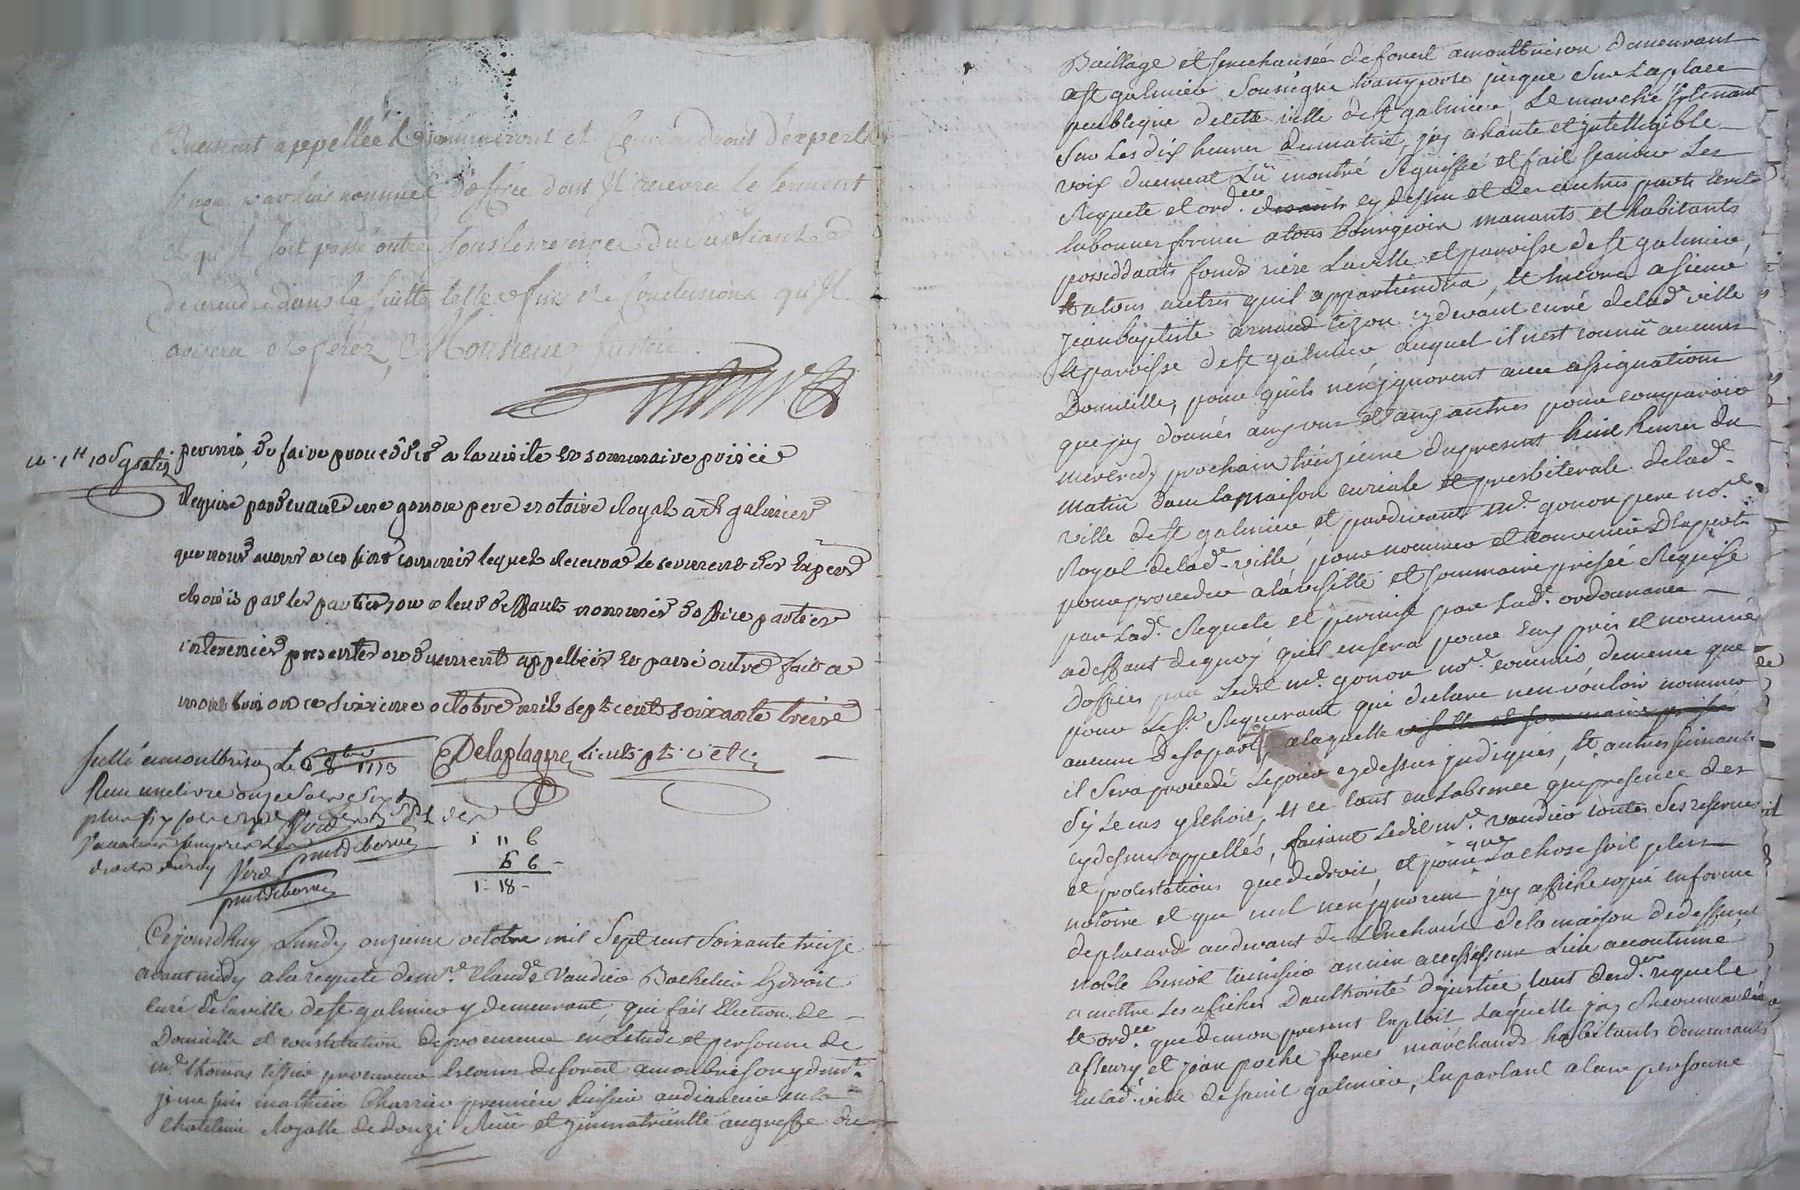 duement appellée le nommeront et conviendront d'experts
sinon par luy nommé d'office dont Il recevra le serment
et qu'il soit passé outre sous les reserves du supliant de
prendre dans la suitte telle fins et Conclusions qu'Il
avisera et ferez, Monsieur, Justice.
permis de faire proceddér a la visite et sommaire prisée
Requise pardevant me gonon pere notaire Royal a st galmier
que nous avons a ces fins commis lequel recevra le serment des Experts
choisis par les parties, ou a leur deffaut nommés d'office parties
interessées presentes ou duement appellées et passé outre fait a
montbrison ce sixieme octobre mil sept cent soixante treize
Delaplagne lieut. pt.
scellé a montbrison Le 6 8bre 1773
Reçu une livre onze sols six
1 11 6
6 6
1 18
Cejourdhuy Lundy onzieme octobre mil Sept cent Soixante treize
avant midy a la requete de mre. Claude Vaudier Bachelier En droit
curé de la ville de st galmier y demeurant, qui fait Election de
Domicille et constitution de procureur en L'etude et personne de
me. thomas tissier procureur es cours de forest a montbrison y demt.
je me suis mathieu Charrier premier huissier audiancier en la
chatelenie Royalle de donzi Reçu et jmmatriculle au greffe du
Baillage et senechaussée de forest a montbrison demeurant
a st galmier Sousigné transporté jusque Sur La place
publique de cette ville de st galmier Le marché sy tenant
Sur Les dix heures du matin, jay a haute et jntelligible
voix duement Lu montré Signiffié et fait scavoir Les
Requete et ordce. cy dessus et des autres parts Ecrite
la bonne forme a tous bourgeois manants et habitants
possedants fonds riere La ville et paroisse de st galmier,
et a tous autres quil appartiendra, et Encore a sieur
jean baptiste arnaud tezon cydevant curé de lade. ville
et paroisse de st galmier auquel il n'est connu aucun
Domicille, pour quils n'en jgnorent avec assignation
que jay donnée aux uns et aux autres pour comparoir
mercredy prochain treizieme du present huit heures du
matin dans la maison curiale et presbiterale de lade.
ville de st galmier et pardevant me. gonon pere nore.
Royal de lade. ville, pour nommer et convenir D'experts
pour proceder a la visitte et sommaire prisée Requise
par Lade. Requete et permise par Lade. ordonnance
a deffaut de quoy quil en sera pour Eux pris et nommé
D'offices par Ledit me. gonon nore. commis, de meme que
pour Le sr. Requerant qui declare n'en vouloir nommer
aucun de sa part, a laquelle visitte et sommaire prisée
il Sera procedé Le jour cy dessus jndiqués, Et autres suivants
Sy Le cas y Echoit, Et ce tant en L'absence que presence des
cy dessus appellés, faisant Ledit mre. vaudier toutes Ses reserves
et protestations que de droit, et pour que La chose soit plus
notoire et que nul n'en jgnorent jay affiché copie en forme
de placard au devant de La maison de deffunt
noble benoit tuissier ancien assesseur Lieu accoutumé
a mettre Les affiches D'authorité de justice tant desd. requete
et ordce. que de mon present Exploit Laquelle jay Recommandée
a fleury et jean poche freres marchands habitants demeurants
en lade. ville de saint galmier, En parlant a leur personne